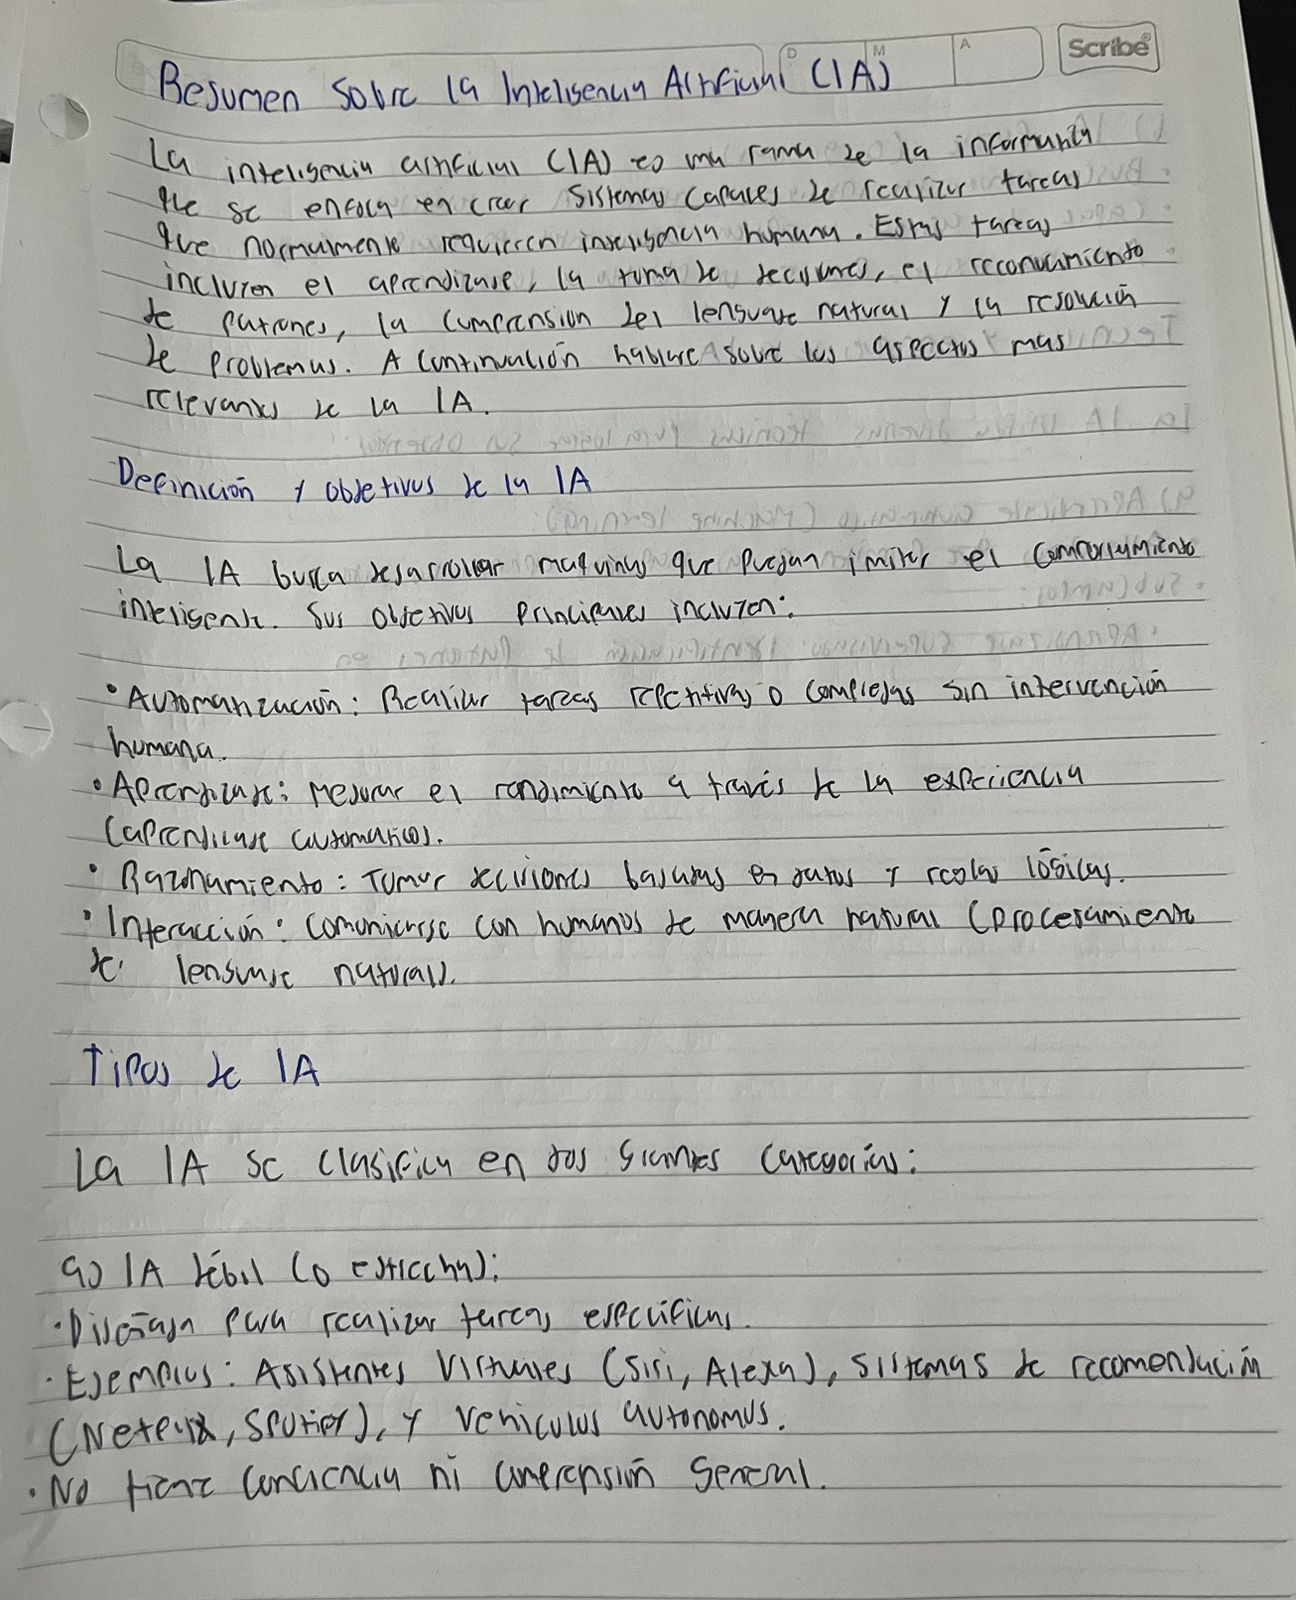 Scribe
D M A
Resumen sobre la Inteligencia Artificial (IA)
La inteligencia artificial (IA) es una rama de la informatica
que se enfoca en crear sistemas capaces de realizar tareas
que normalmente requieren inteligencia humana. Estas tareas
incluyen el aprendizaje, la toma de decisiones, el reconocimiento
de patrones, la comprension del lenguaje natural y la resolución
de problemas. A continuación hablare sobre los aspectos mas
relevantes de la IA.
Definición y objetivos de la IA
La IA busca desarrollar maquinas que puedan imiter el comportamiento
inteligente. Sus objetivos principales incluyen:
• Automatización: Realizar tareas repetitivas o complejas sin intervención
humana.
• Aprendizaje: Mejorar el rendimiento a través de la experiencia
(aprendizaje automatico).
• Razonamiento: Tomar decisiones basadas en datos y reglas lógicas.
• Interacción: Comunicarse con humanos de manera natural (procesamiento
de lenguaje natural).
Tipos de IA
La IA se clasifica en dos grandes categorías:
a) IA débil (o estrecha):
• Diseñada para realizar tareas especificas.
• Ejemplos: Asistentes Virtuales (Siri, Alexa), sistemas de recomendación
(Netflix, Spotify), y vehiculos autonomos.
• No tiene conciencia ni comprensión general.